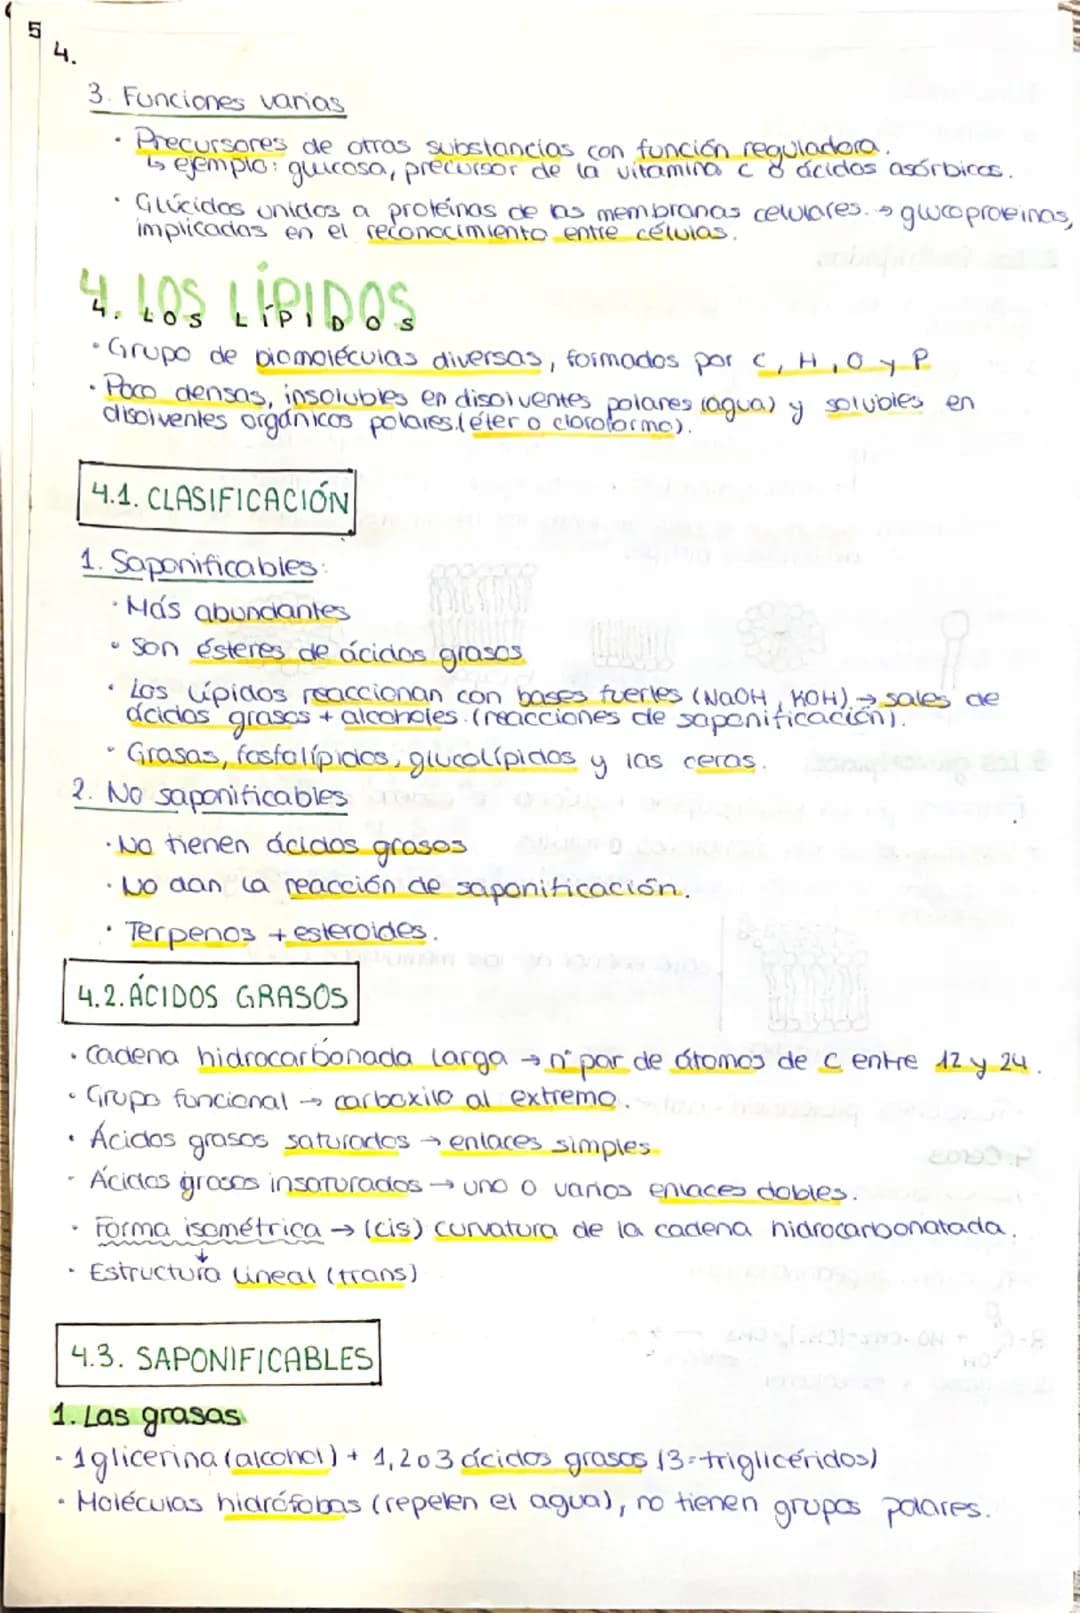 5
4.
3. Funciones varias
· Precursores de otras substancias con función reguladora.
↳ ejemplo: glucosa, precursor de la vitamina c o ácidos asórbicos.
· Glúcidos unidos a proteínas de las membranas celulares. → glucoproteinas,
implicadas en el reconocimiento entre células.
4. LOS LÍPIDOS
4. LOS LÍPIDOS
· Grupo de biomoléculas diversas, formados por C, H, O y P
· Poco densas, insolubles en disolventes polares (agua) y solubles en
disolventes orgánicos polares (éter o cloroformo).
4.1. CLASIFICACIÓN
1. Saponificables:
· Más abundantes
· Son ésteres de ácidos grasos
· Los lípidos reaccionan con bases fuertes (NaOH, KOH). → sales de
ácidos grasos + alcoholes. (reacciones de saponificación).
· Grasas, fosfolípidos, glucolípidos y las ceras.
2. No saponificables
· No tienen ácidos grasos
· No dan la reacción de saponificación.
· Terpenos + esteroides.
4.2. ÁCIDOS GRASOS
· Cadena hidrocarbonada larga → nº par de átomos de C entre 12 y 24.
· Grupo funcional → carboxilo al extremo.
· Ácidos grasos saturados → enlaces simples
· Ácidos grasos insaturados → uno o varios enlaces dobles.
· Forma isométrica → (cis) curvatura de la cadena hidrocarbonatada.
↓
· Estructura lineal (trans)
4.3. SAPONIFICABLES
1. Las grasas
· 1 glicerina (alcohol) + 1, 2 o 3 ácidos grasos (3=triglicéridos)
· Moléculas hidrófobas (repelen el agua), no tienen grupos polares.